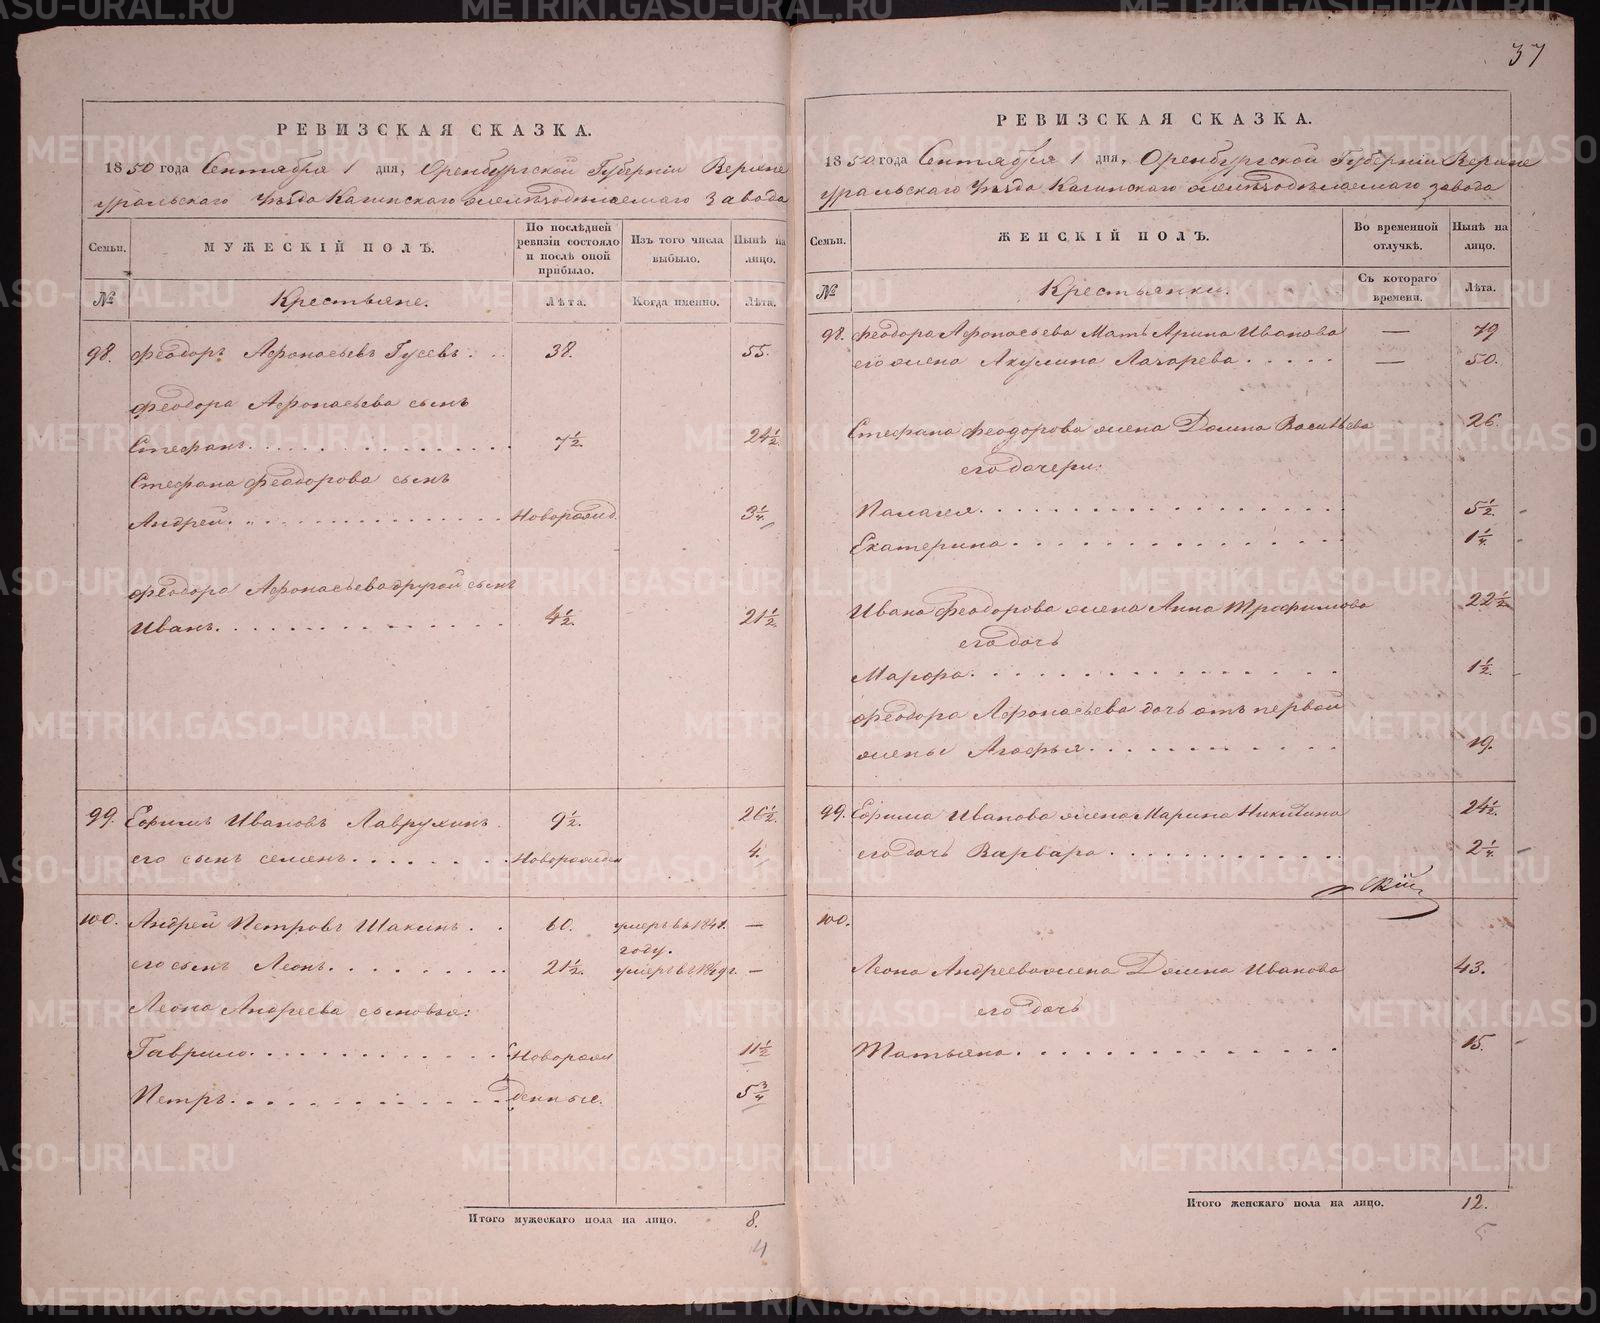 37
РЕВИЗСКАЯ СКАЗКА.
1850 года Сентября 1 дня, Оренбургской Губерніи Верхне
уральскаго Уѣзда Кагинскаго желѣзодѣлаемаго завода
Семьи.
МУЖЕСКІЙ ПОЛЪ.
По послѣдней ревизіи состояло и послѣ оной прибыло.
Изъ того числа выбыло.
Нынѣ на лицо.
№
Крестьяне.
Лѣта.
Когда именно.
Лѣта.
98. Феодоръ Афонасьевъ Гусевъ . . 38. 55.
Феодора Афонасьева сынъ
Стефанъ. 7½. 24½.
Стефана Феодорова сынъ
Андрей. Новорожд. 3¼.
Феодора Афонасьева другой сынъ
Иванъ. 4½. 21½.
99. Ефимъ Ивановъ Лаврухинъ. 9½. 26½.
его сынъ Семенъ. Новорожден 4.
100. Андрей Петровъ Шакинъ. . 60. умеръ въ 1841. —
году.
его сынъ Леонъ. 21½. умеръ въ 1849 г. —
Леона Андреева сыновья:
Гаврило. Новорож 11½
Петръ. денные. 5¾
Итого мужескаго пола на лицо. 8.
4
РЕВИЗСКАЯ СКАЗКА.
1850 года Сентября 1 дня, Оренбургской Губерніи Верхне
уральскаго Уѣзда Кагинскаго желѣзодѣлаемаго завода
Семьи.
ЖЕНСКІЙ ПОЛЪ.
Во временной отлучкѣ.
Нынѣ на лицо.
№
Крестьянки.
Съ котораго времени.
Лѣта.
98. Феодора Афонасьева Мать Арина Иванова — 79
его жена Акулина Лазарева. — 50.
Стефана Феодорова жена Домна Васильева 26.
его дочери:
Палагея. 5½.
Екатерина. 1¼.
Ивана Феодорова жена Анна Трофимова 22½.
его дочь
Марфа. 1½.
Феодора Афонасьева дочь отъ первой
жены Агафья. 19.
99. Ефима Иванова жена Марина Никитина 24½.
его дочь Варвара. 2¼.
скій
100.
Леона Андреева жена Домна Иванова 43.
его дочь
Татьяна. 15.
Итого женскаго пола на лицо. 12.
5
METRIKI.GASO-URAL.RU